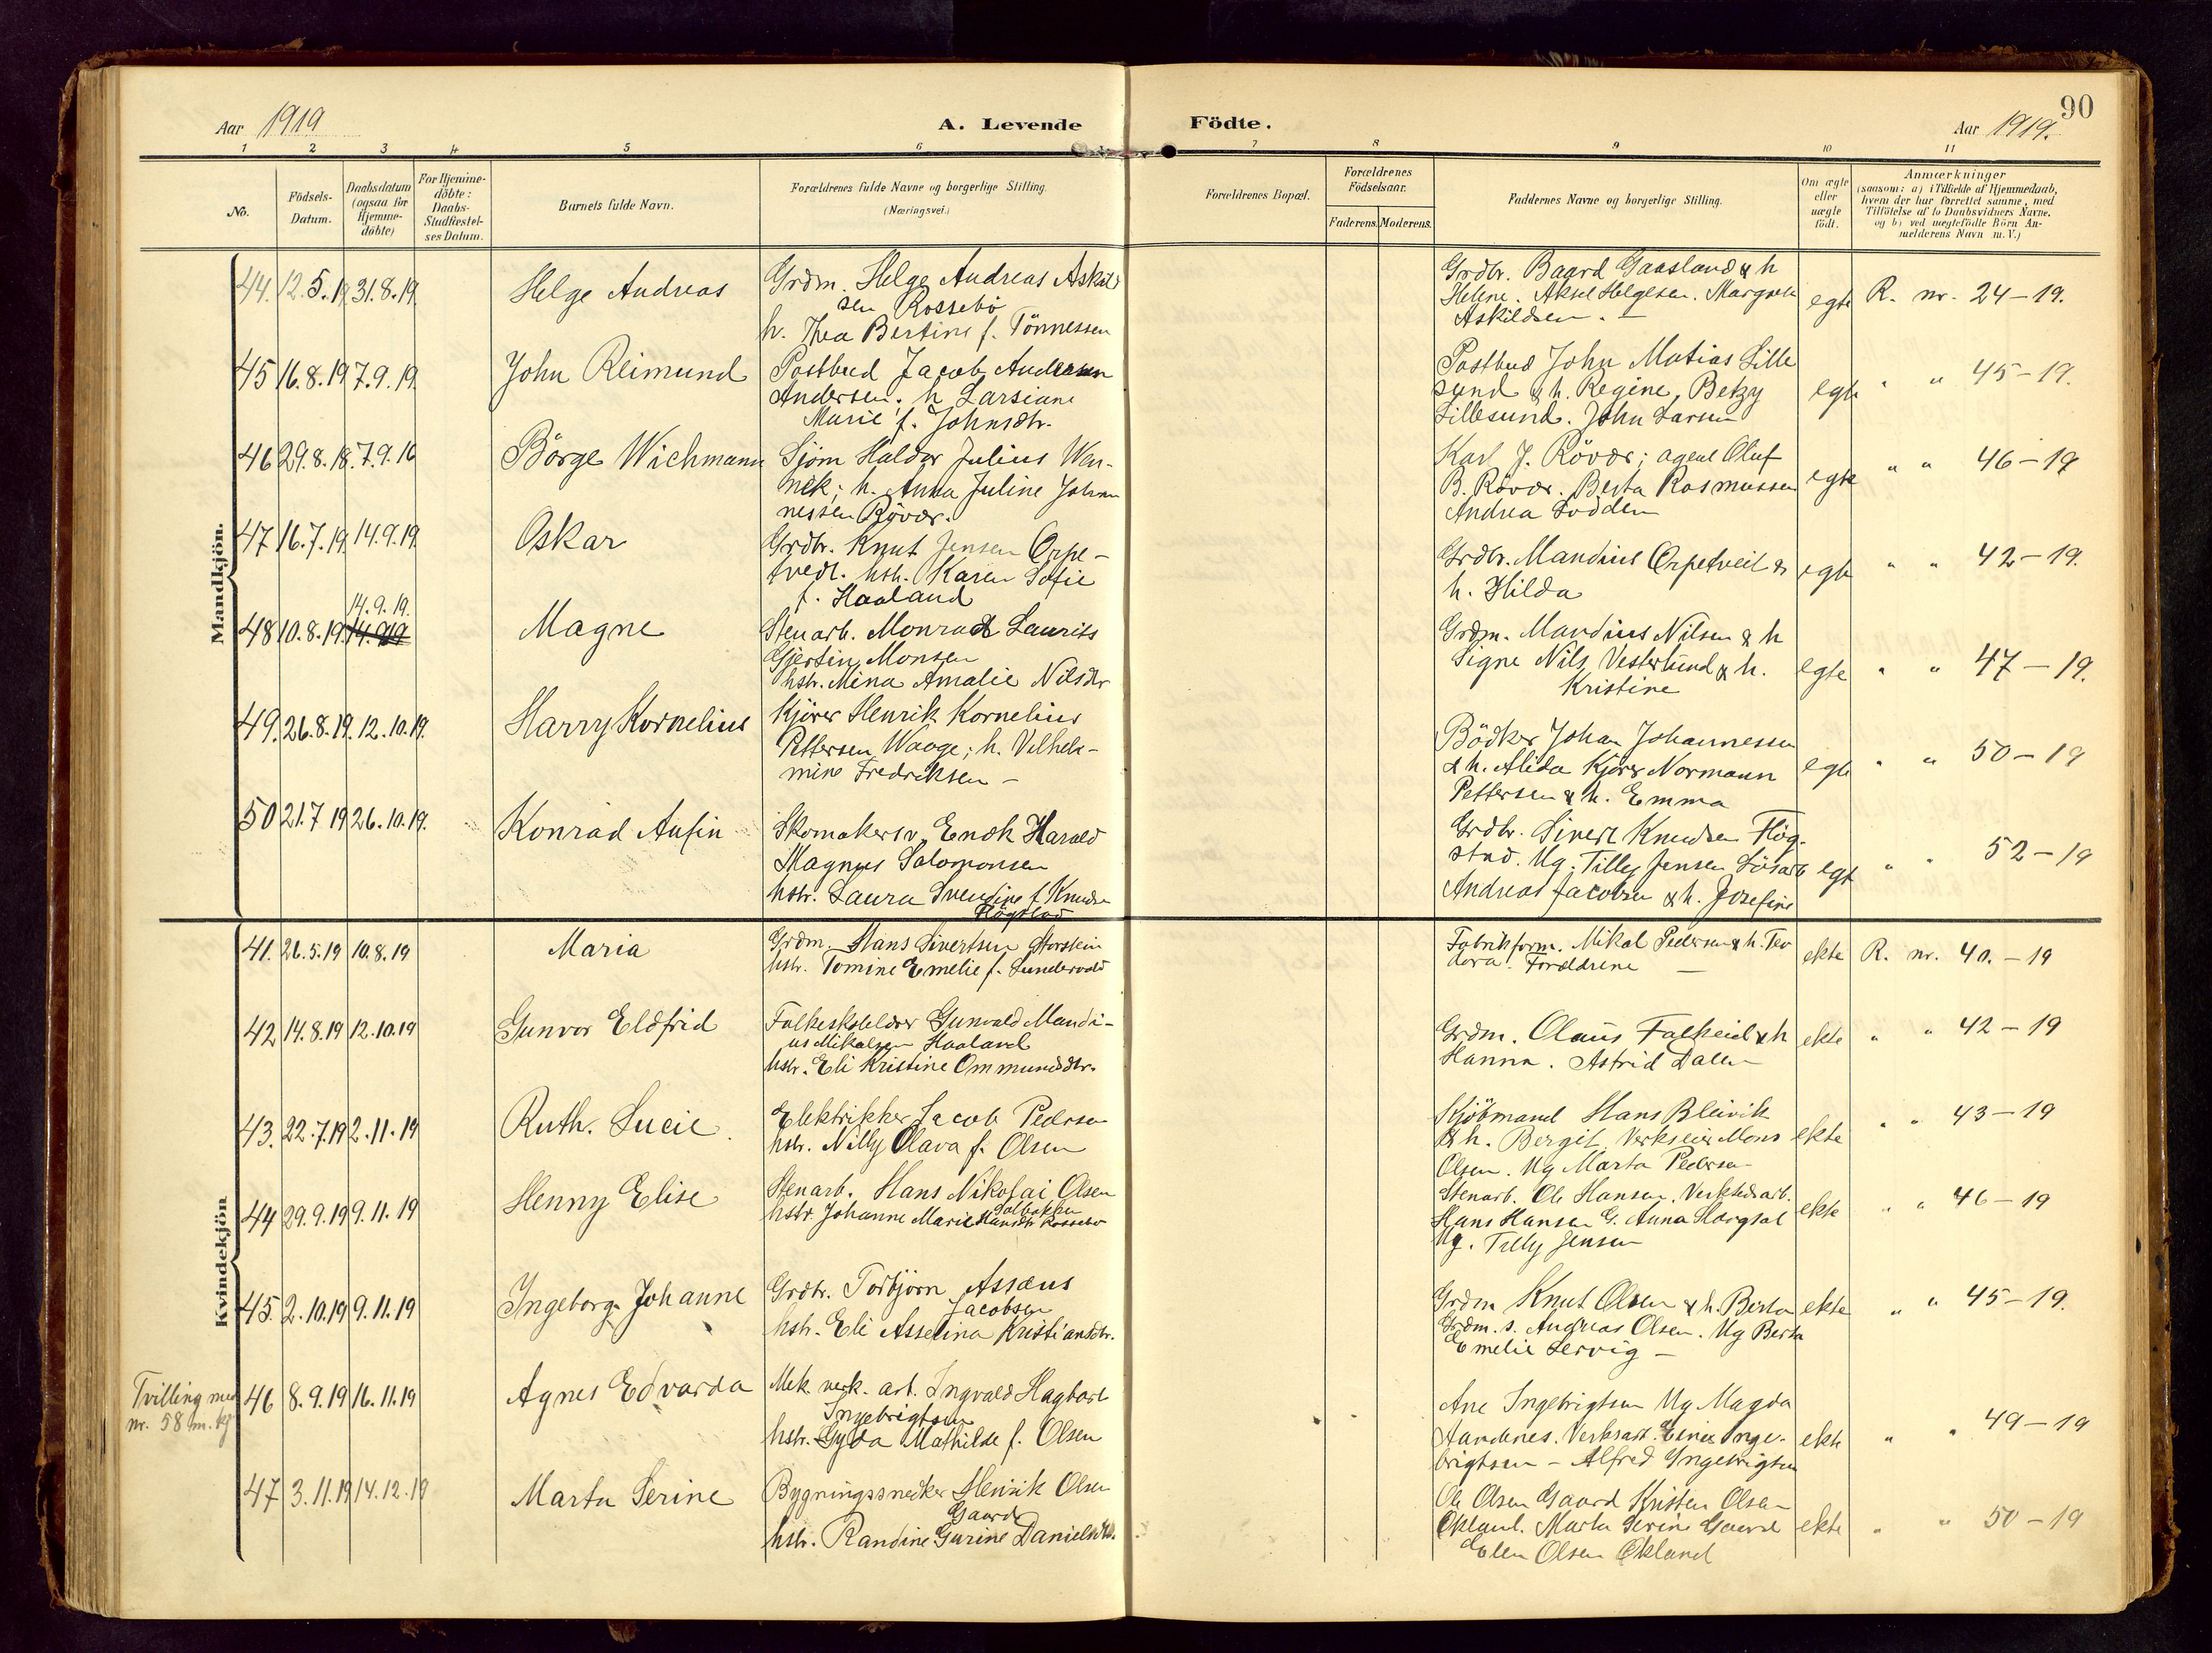 90
Aar 1919
A. Levende Födte.
Aar 1919.
1 2 3 4 5 6 7 8 9 10 11
No.
Födsels-Datum.
Daabsdatum (ogsaa for Hjemme-döbte)
For Hjemme-döbte: Daabs-Stadfæstel-ses Datum.
Barnets fulde Navn.
Forældrenes fulde Navne og borgerlige Stilling.
(Næringsvei.)
Forældrenes Bopæl.
Forældrenes Födselsaar.
Faderens. Moderens.
Faddernes Navne og borgerlige Stilling.
Om ægte eller uægte födt.
Anmærkninger
(saasom: a) i Tilfælde af Hjemmedaab,
hvem der har forrettet samme, med
Tilföielse af to Daabsvidners Navne.
og b) ved uægtefödte Börn An-
melderens Navn m. V.)
Mandkjön.
44. 12.5.19 31.8.19 Helge Andreas
Grdm. Helge Andreas Askild
sen Rossebö
h. Thea Bertine f. Tönnessen
Grdbr. Baard Gaasland & h
Helene. Aksel Helgesen. Margrete
Askildsen. —
egte R. nr. 24-19.
45 16.8.19 7.9.19 John Reimund
Postbud Jacob Andersen
Andersen. h Larsiane
Marie f. Johnsdtr.
Postbud John Matias Lille
sund & h. Regine, Betzy
Lillesund. John Larsen
egte " " 45-19.
46 29.8.18. 7.9.16 Börge Wichmann
Sjöm Haldor Julius Wan-
nek; h. Anna Juline Johan
nessen Rövær.
Karl J. Rövær; agent Oluf
B. Rövær. Berta Rasmussen
Andrea Lodden
egte " " 46-19
47 16.7.19 14.9.19. Oskar
Grdbr. Knut Jensen Orpe-
tvedt. hstr. Karen Sofie
f. Haaland
Grdbr. Mandius Orpetveit &
h. Hilda
egte " " 42-19.
48 10.8.19 14.9.19 14.9.19. Magne
Stenarb. Monrad Laurits
Gjertin Monsen
hstr. Mina Amalie Nilsdtr
Grdm. Mandius Nilsen & h
Signe Nils Vesterlund & h.
Kristine
egte " " 47-19.
49. 26.8.19. 12.10.19. Harry Kornelius
Kjörer Henrik Kornelius
Pettersen Waage; h. Vilhel-
mine Fredriksen —
Bödker Johan Johannessen
& h. Alida Kjörer Normann
Pettersen & h. Emma
egte " " 50-19
50 21.7 19 26.10.19. Konrad Anfin
Skomakersv. Enok Harald
Magnus Salomonsen
hstr. Laura Svendine f. Knudsen
Högstad
Grdbr. Sivert Knudsen Hög-
stad. Ug. Tilly Jensen Lösarb
Andreas Jacobsen & h. Josefine
egt " " 52-19
Kvindekjön
41. 26.5.19 10.8.19 Maria
Grdm. Hans Sivertsen Storstein
hstr. Tomine Emelie f. Sundervold
Fabrikform. Mikal Pedersen & h. Teo
dora. Forældrene —
ekte R. nr. 40.-19
42 14.8.19 12.10.19 Gunvor Eldfrid
Folkeskolelærer Gunvald Mandi-
us Mikalsen Haaland
hstr. Eli Kristine Ommundsdtr.
Grdm. Olaus Falkeid & h
Hanna. Astrid Dalen
ekte " " 42-19
43. 22.7.19 2.11.19 Ruth. Lucie.
Elektrikker Jacob Pedersen
hstr. Nilly Olava f. Olsen
Kjöbmand Hans Bleivik
& h. Bergit. Verkseier Mons
Olsen. Ug Marta Pedersen
ekte " " 43-19
44 29.9.19 9.11.19 Henny Elise
Stenarb. Hans Nikolai Olsen
Solbakken
hstr. Johanne Marie Hansdtr Rossebö
Stenarb. Ole Hansen. Verkstedsarb.
Hans Hansen G. Anna
Ug. Tilly Jensen
ekte " " 46-19
45. 2.10.19 9.11.19 Ingeborg Johanne
Grdbr. Torbjörn Assæus
Jacobsen
hstr. Eli Asselina Kristiansdtr.
Grdm Knut Olsen & h. Berta
Grdm. s. Andreas Olsen. Ug Berta
Emelie Lervig —
ekte " " 45-19.
Tvilling med
nr. 58 m. kj.
46 8.9.19 16.11.19 Agnes Edvarda
Mek. verk. arb. Ingvald Hagbart
Ingebrigtsen
hstr. Gyda Mathilde f. Olsen
Ane Ingebrigtsen Ug Magda
Aandenes. Verksarb. Einer Inge-
brigtsen - Alfred Ingebrigtsen
ekte " " 49-19
47 3.11.19 14.12.19 Marta Serine
Bygningssnedker Henrik Olsen
Gaard
hstr. Randine Gurine Danielsdtr.
Ole Olsen Gaard Kristen Olsen
Økland. Marta Serine Gaard
Elen Olsen Økland
ekte " " 50-19